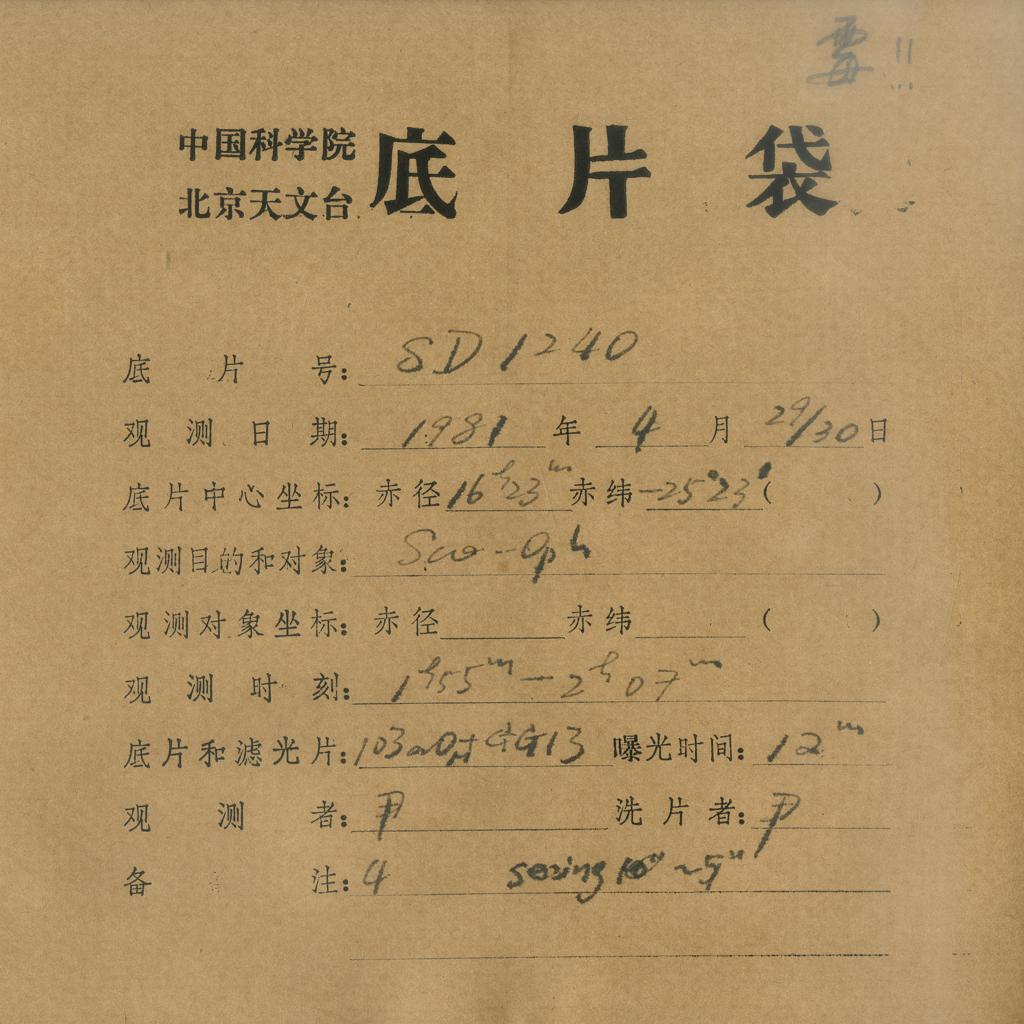 霉 !!
中国科学院
北京天文台
底片袋
底片号: SD1240
观测日期: 1981年4月29/30日
底片中心坐标: 赤径16ʰ23ᵐ赤纬-25°23′( )
观测目的和对象: Sco-Oph
观测对象坐标: 赤径 赤纬 ( )
观测时刻: 1ʰ55ᵐ-2ʰ07ᵐ
底片和滤光片: 103aO+GG13 曝光时间: 12ᵐ
观测者: 尹 洗片者: 尹
备注: 4 seeing ~5″